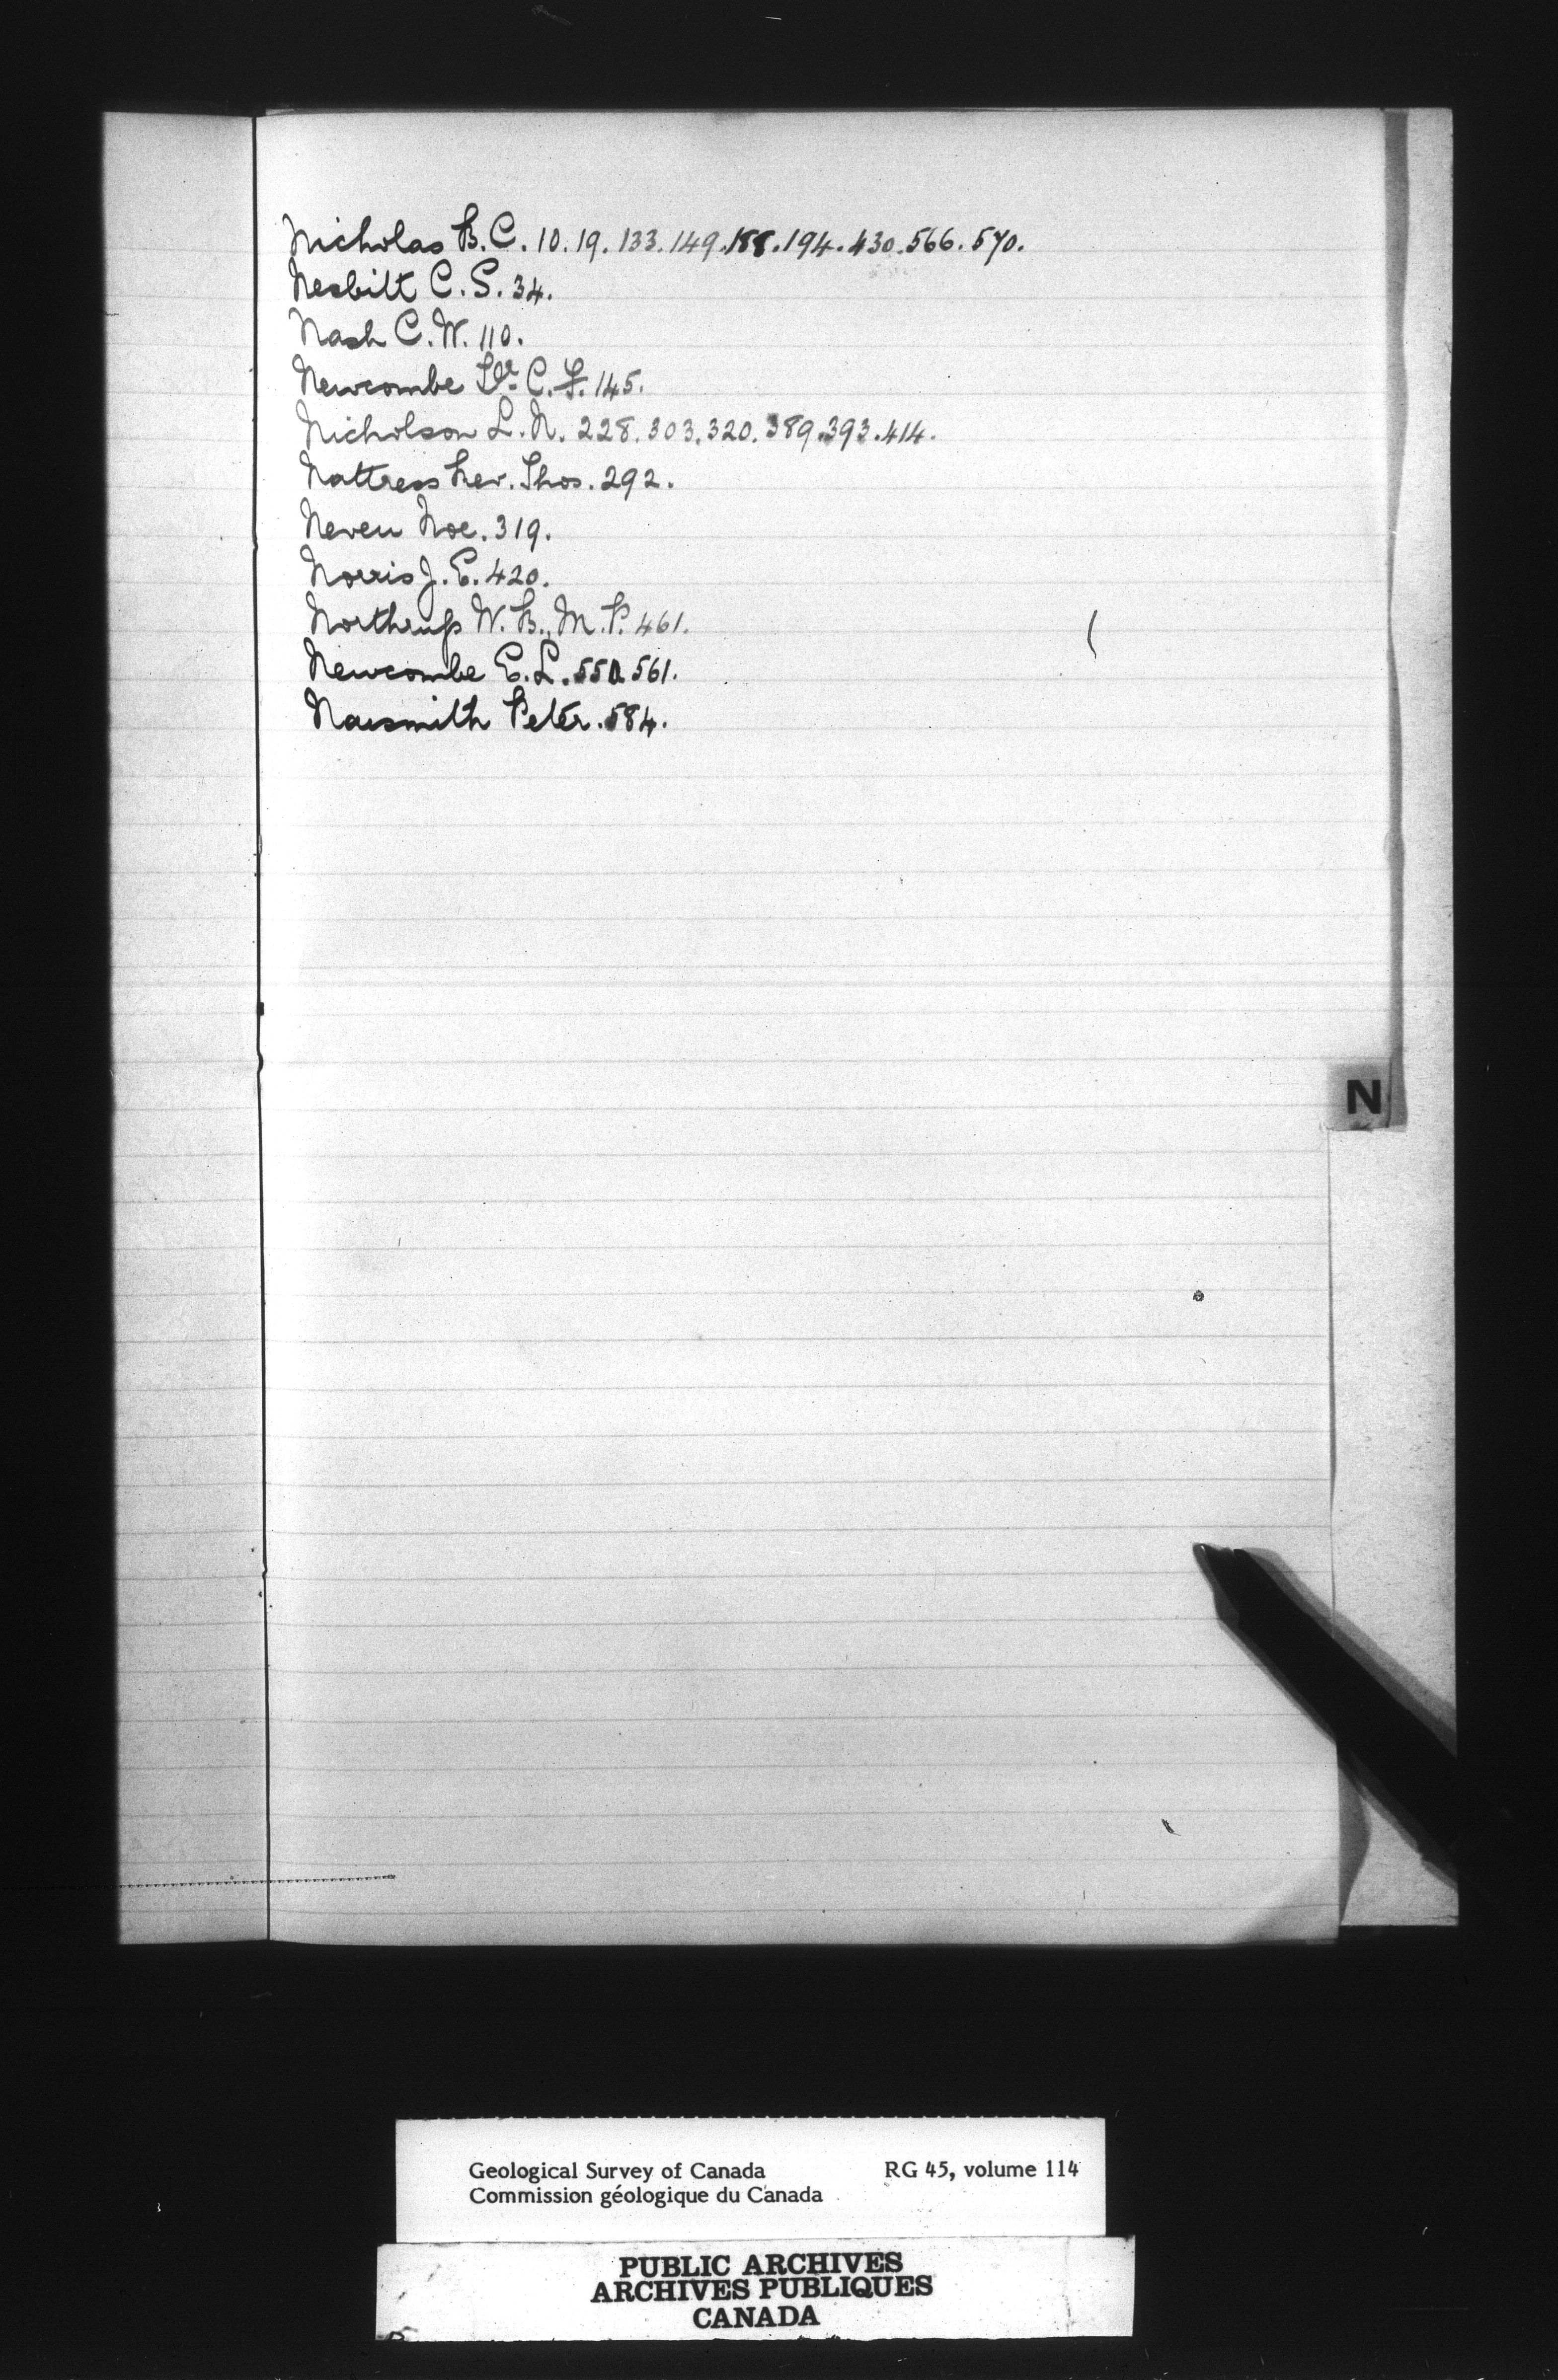 Nicholas B.C. 10. 19. 133. 149. 188. 194. 430. 566. 570.
Nesbitt C.S. 34.
Nash C.W. 110.
Newcombe Dr. C.F. 145.
Nicholson L.N. 228. 303. 320. 389. 393. 414.
Nattress Rev. Thos. 292.
Neveu Noe. 319.
Norris J.E. 420.
Northrup W.B., M.P. 461.
Newcombe E.L. 550. 561.
Naismith Peter. 584.
N
Geological Survey of Canada RG 45, volume 114
Commission géologique du Canada
PUBLIC ARCHIVES
ARCHIVES PUBLIQUES
CANADA